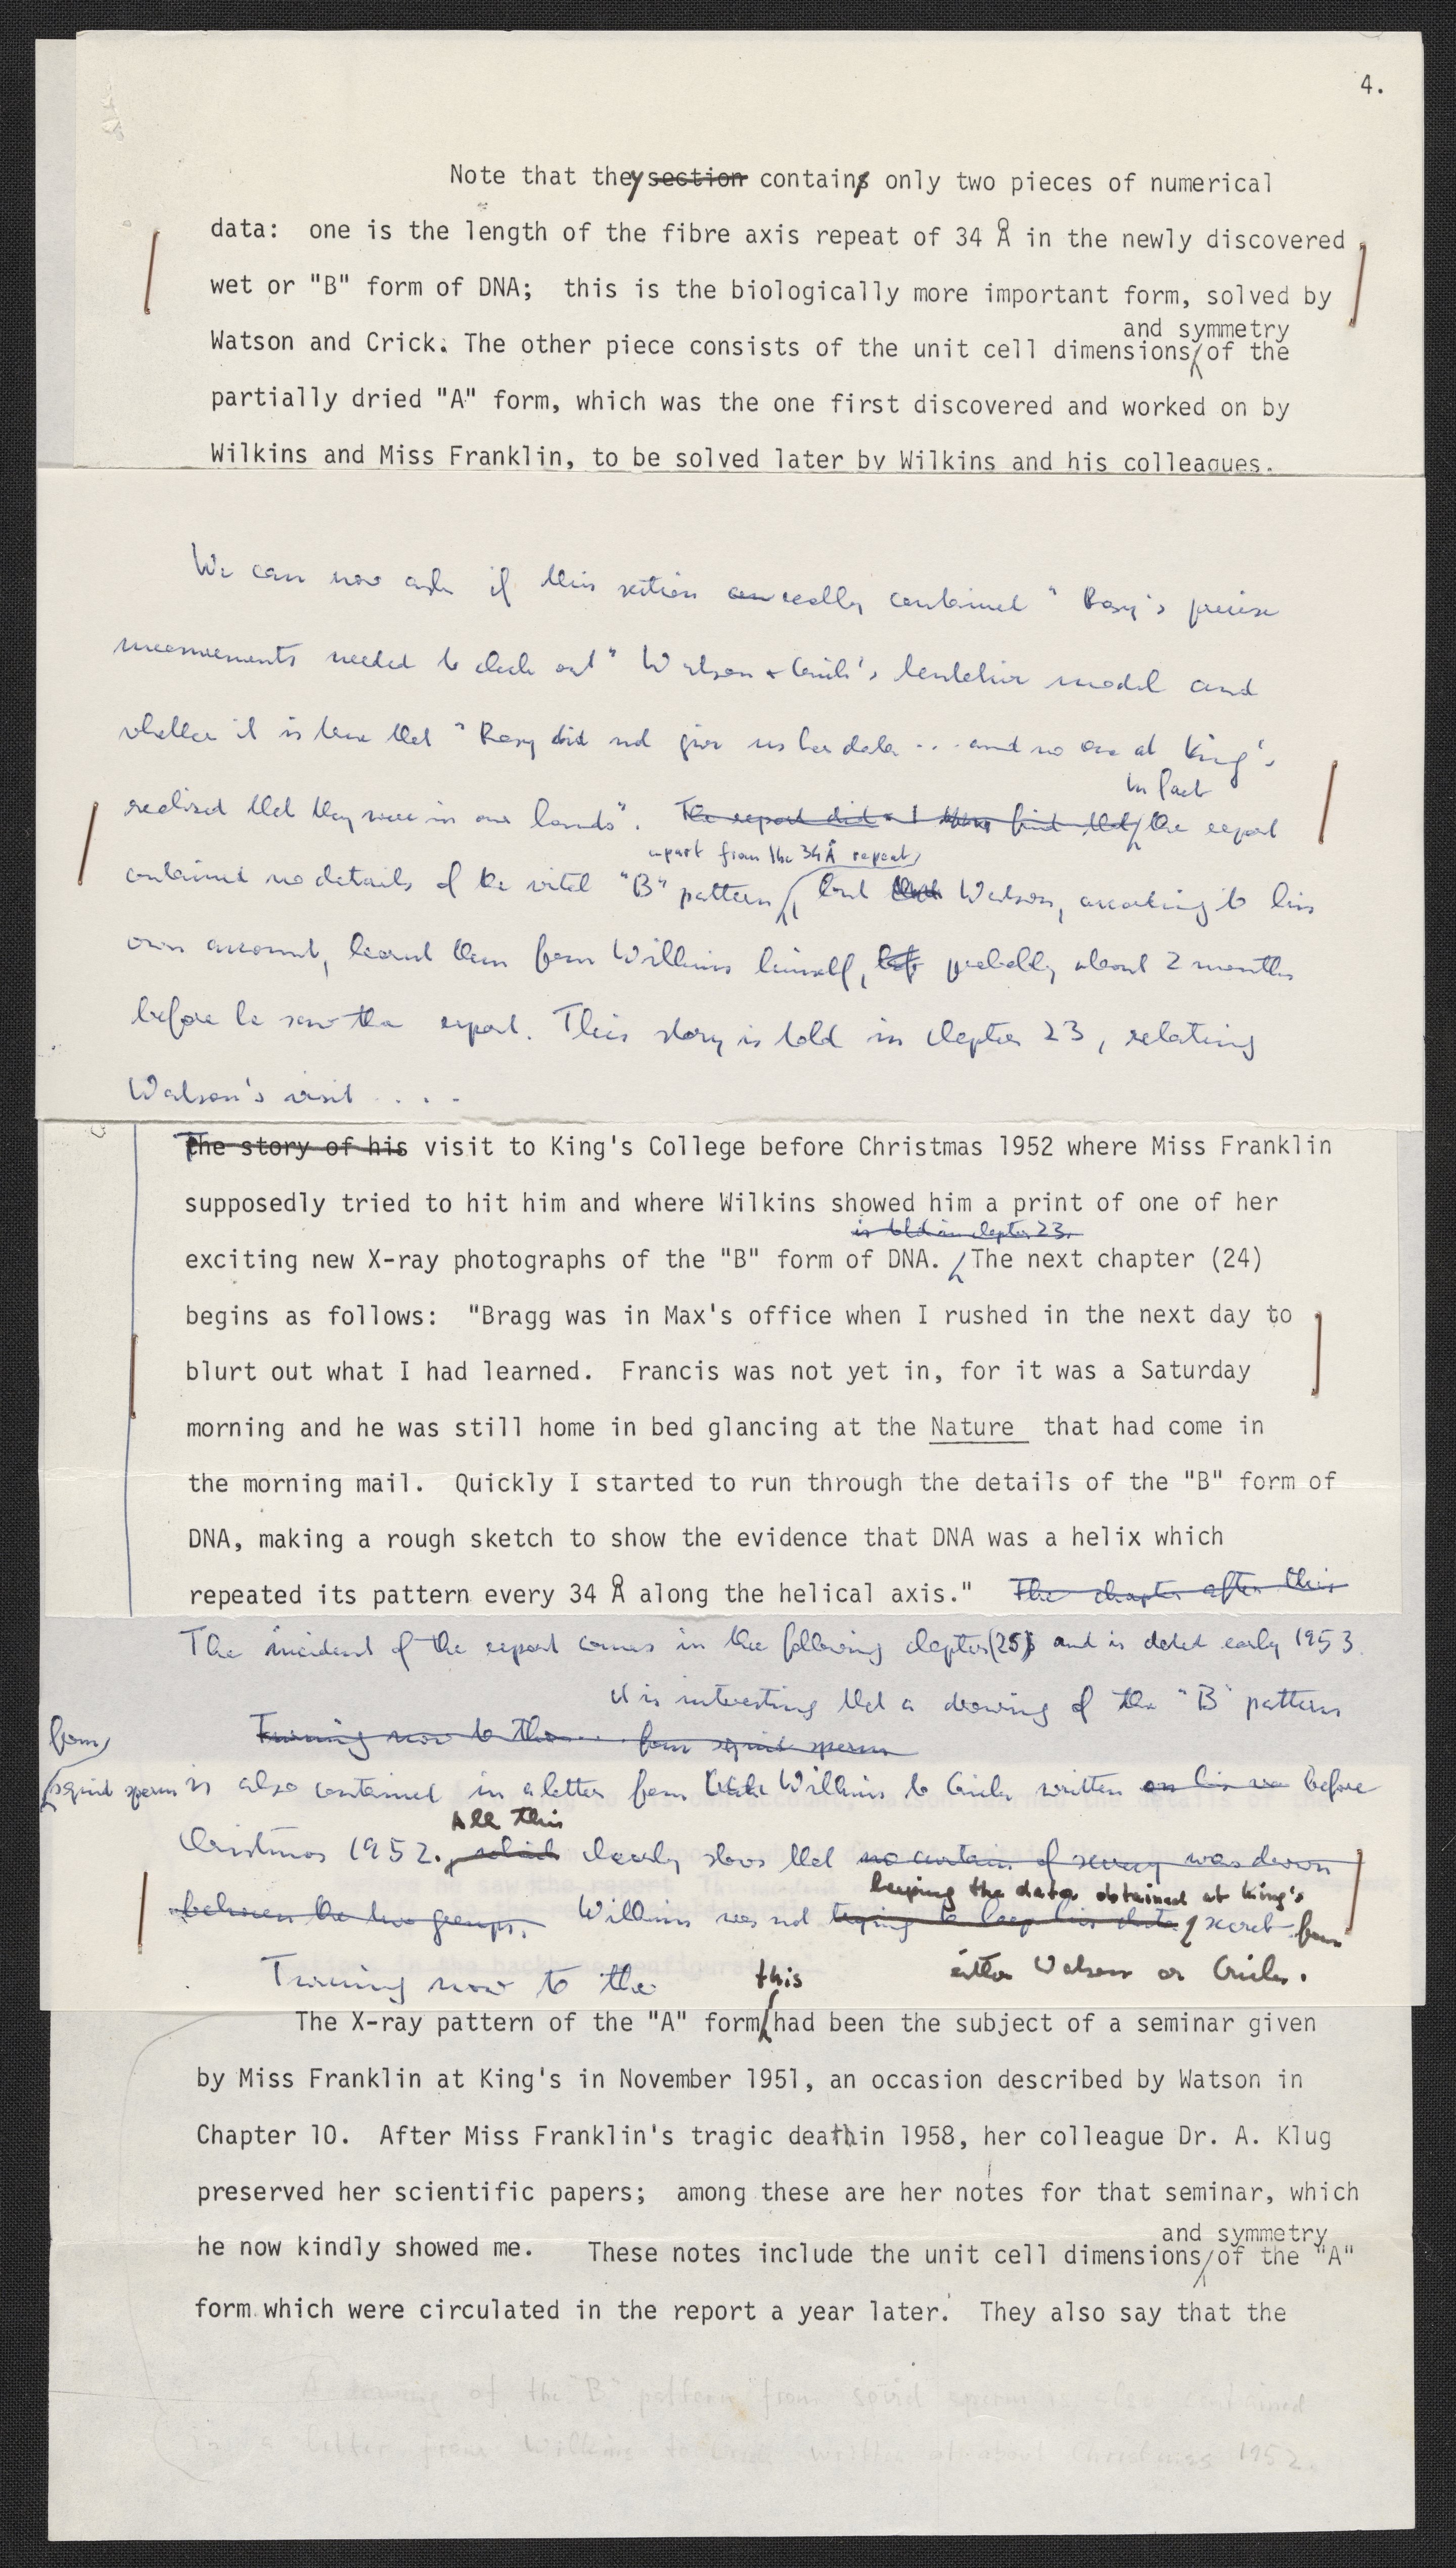 4.
Note that they section contains only two pieces of numerical
data: one is the length of the fibre axis repeat of 34 Å in the newly discovered
wet or "B" form of DNA; this is the biologically more important form, solved by
and symmetry
Watson and Crick. The other piece consists of the unit cell dimensions of the
partially dried "A" form, which was the one first discovered and worked on by
Wilkins and Miss Franklin, to be solved later by Wilkins and his colleagues.
We can now ask if this section really contained "Rosy's precise
measurements needed to check out" Watson + Crick's tentative model and
whether it is true that "Rosy did not give us her data ... and no one at King's
in fact
realised that they were in our hands". The report did find that the report
apart from the 34 Å repeat,
contained no details of the vital "B" pattern, but that Watson, according to his
own account, learnt them from Wilkins himself, probably about 2 months
before he saw the report. This story is told in chapter 23, relating
Watson's visit ....
The story of his visit to King's College before Christmas 1952 where Miss Franklin
supposedly tried to hit him and where Wilkins showed him a print of one of her
is told in chapter 23.
exciting new X-ray photographs of the "B" form of DNA. The next chapter (24)
begins as follows: "Bragg was in Max's office when I rushed in the next day to
blurt out what I had learned. Francis was not yet in, for it was a Saturday
morning and he was still home in bed glancing at the Nature that had come in
the morning mail. Quickly I started to run through the details of the "B" form of
DNA, making a rough sketch to show the evidence that DNA was a helix which
repeated its pattern every 34 Å along the helical axis." The chapter after this
The incident of the report comes in the following chapter (25) and is dated early 1953.
It is interesting that a drawing of the "B" pattern
Turning now to the... from squid sperm
from
squid sperm is also contained in a letter from Wilkins to Crick written before
All this
Christmas 1952. which clearly shows that no curtain of secrecy was drawn
keeping the data obtained at King's
between the two groups. Wilkins was not trying to keep his data secret from
either Watson or Crick.
Turning now to the
this
The X-ray pattern of the "A" form had been the subject of a seminar given
by Miss Franklin at King's in November 1951, an occasion described by Watson in
Chapter 10. After Miss Franklin's tragic death in 1958, her colleague Dr. A. Klug
preserved her scientific papers; among these are her notes for that seminar, which
and symmetry
he now kindly showed me. These notes include the unit cell dimensions of the "A"
form which were circulated in the report a year later. They also say that the
A drawing of the "B" pattern from squid sperm is also contained
in a letter from Wilkins to Crick written about Christmas 1952.